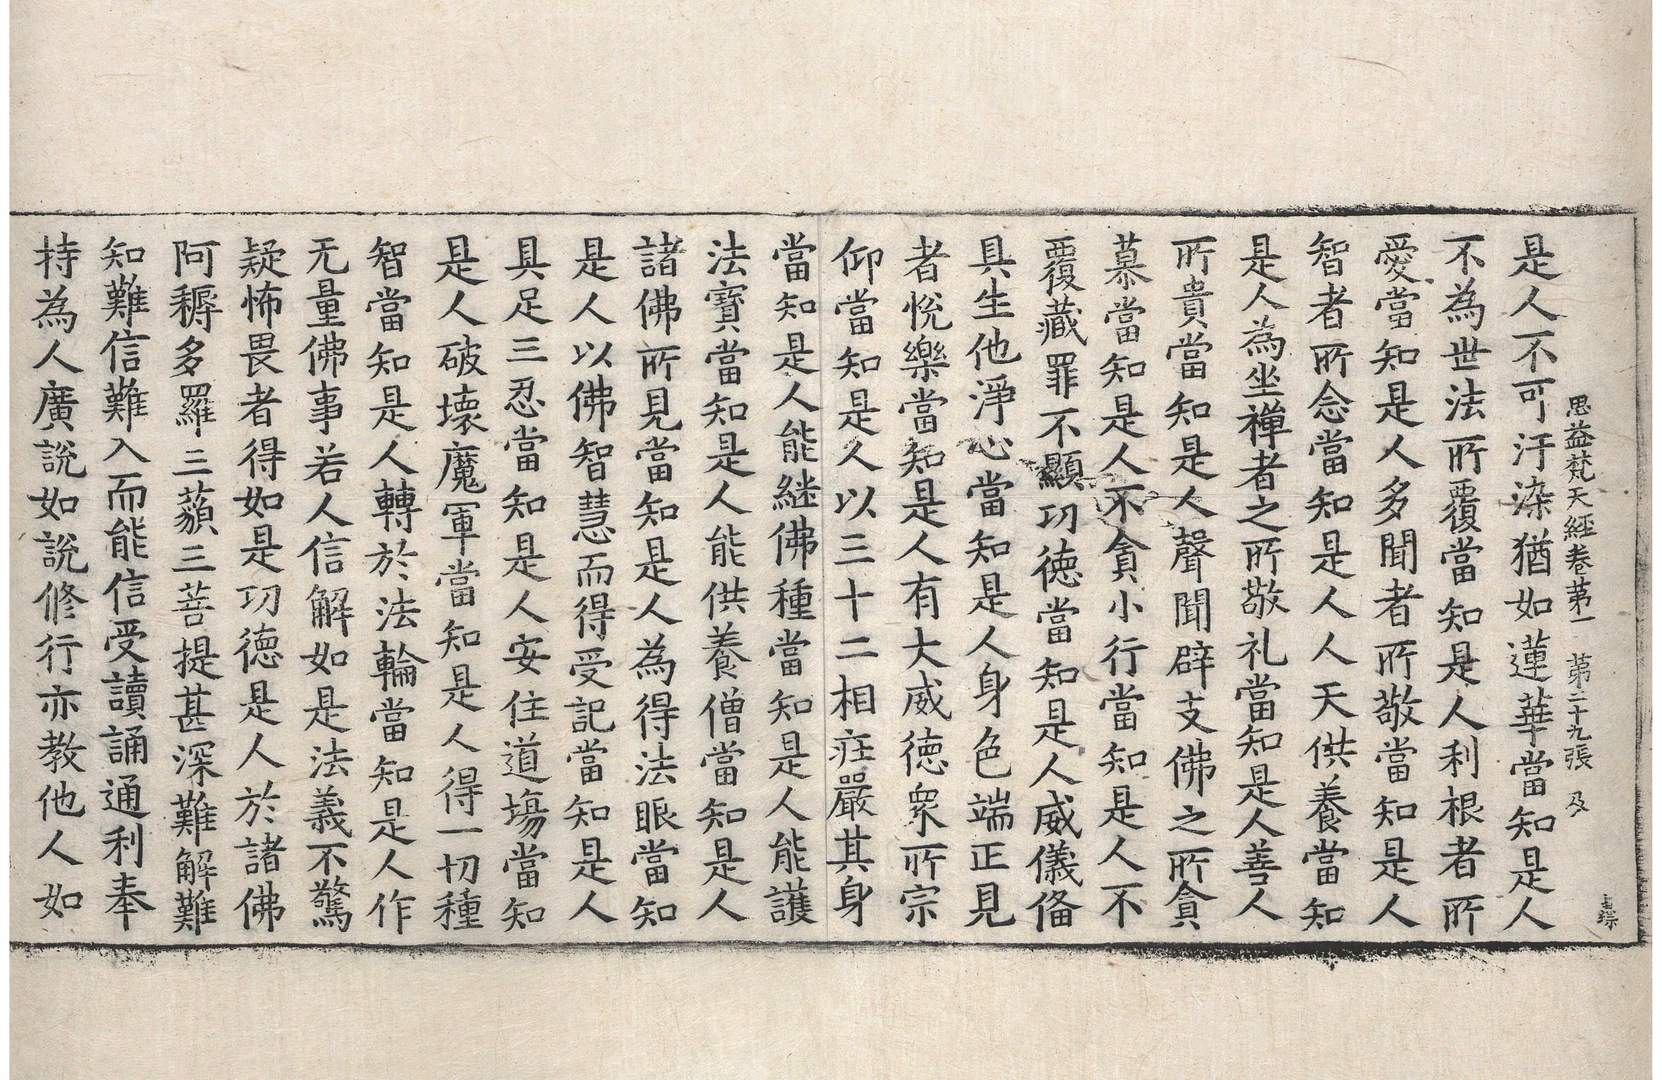 思益梵天經卷第一　第二十九張　及
是人不可汙染猶如蓮華當知是人
不為世法所覆當知是人利根者所
愛當知是人多聞者所敬當知是人
智者所念當知是人人天供養當知
是人為坐禅者之所敬礼當知是人善人
所貴當知是人聲聞辟支佛之所貪
慕當知是人不貪小行當知是人不
覆藏罪不顯功徳當知是人威儀俻
具生他淨心當知是人身色端正見
者悅樂當知是人有大威徳眾所宗
仰當知是人以三十二相莊嚴其身
當知是人能継佛種當知是人能護
法寶當知是人能供養僧當知是人
諸佛所見當知是人為得法眼當知
是人以佛智慧而得受記當知是人
具足三忍當知是人安住道場當知
是人破壞魔軍當知是人得一切種
智當知是人轉於法輪當知是人作
无量佛事若人信解如是法義不驚
疑怖畏者得如是功徳是人於諸佛
阿耨多羅三藐三菩提甚深難解難
知難信難入而能信受讀誦通利奉
持為人廣說如說修行亦教他人如